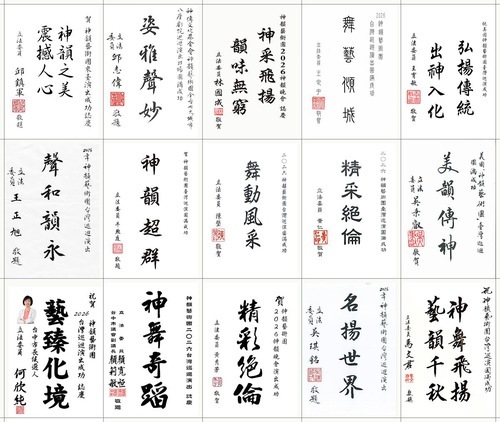 賀 神韻藝術團來臺演出成功 誌慶
神韻之美
震撼人心
立法委員 邱鎮軍 敬題
神傳文化基金會神韻藝術團全台六大城市
姿雅聲妙
立法委員 邱志偉 敬題
神韻藝術團2026神韻晚會 誌慶
神采飛揚
韻味無窮
立法委員 林國成 敬賀
2026神韻藝術團
台灣巡迴演出圓滿成功
舞藝傾城
立法委員 敬賀
弘揚傳統
出神入化
立法委員 王育敏 敬賀
2026年神韻藝術團台灣巡迴演出
聲和韻永
立法委員 王正旭 敬題
賀神韻藝術團台灣巡迴演出圓滿成功
神韻超群
立法委員 敬題
二〇二六神韻藝術團台灣巡演圓滿成功
舞動風采
立法委員 陳瑩 敬賀
二〇二六神韻藝術團臺灣巡演圓滿成功
精采絕倫
立法委員 黃仁 敬賀
美國神韻藝術團臺灣巡迴
圓滿成功
美韻傳神
立法委員 吳宗憲 敬賀
祝賀 神韻藝術團
2026台灣巡迴演出 誌慶
藝臻化境
台中市長候選人
立法委員 何欣純
神韻藝術團二〇二六台灣巡迴演出 誌慶
神舞奇蹈
立法委員 顏寬恒
台中市議會副議長 顏莉敏 敬題
賀 神韻藝術團
2026神韻晚會演出圓滿成功
精彩絕倫
立法委員 黃秀芳 敬賀
2026年神韻藝術團台灣巡迴演出
名揚世界
立法委員 吳琪銘 敬題
祝神韻藝術團台灣巡演圓滿成功
神舞飛揚
藝韻千秋
立法委員 馬文君 敬題